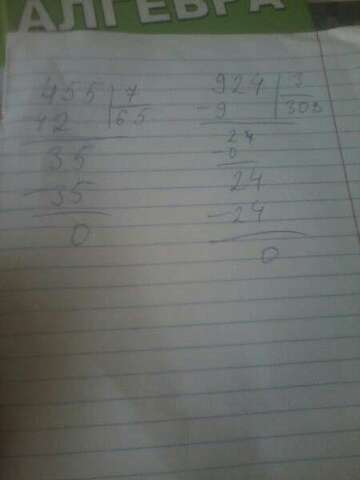 АЛГЕБРА
455 7
42 65
35
-35
0
924 3
-9 308
24
-0
24
-24
0